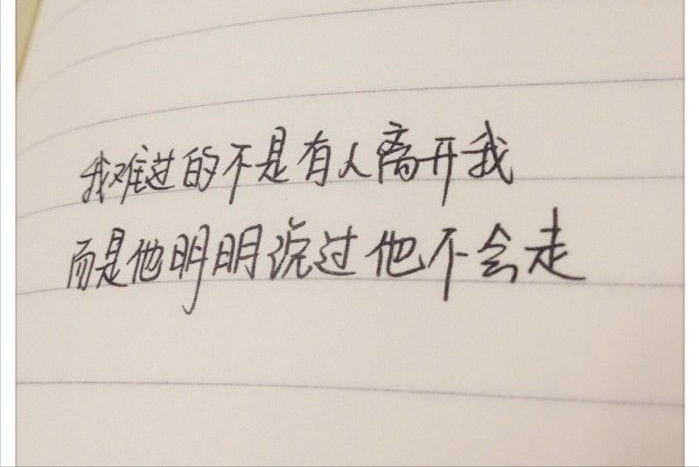 我难过的不是有人离开我
而是他明明说过他不会走